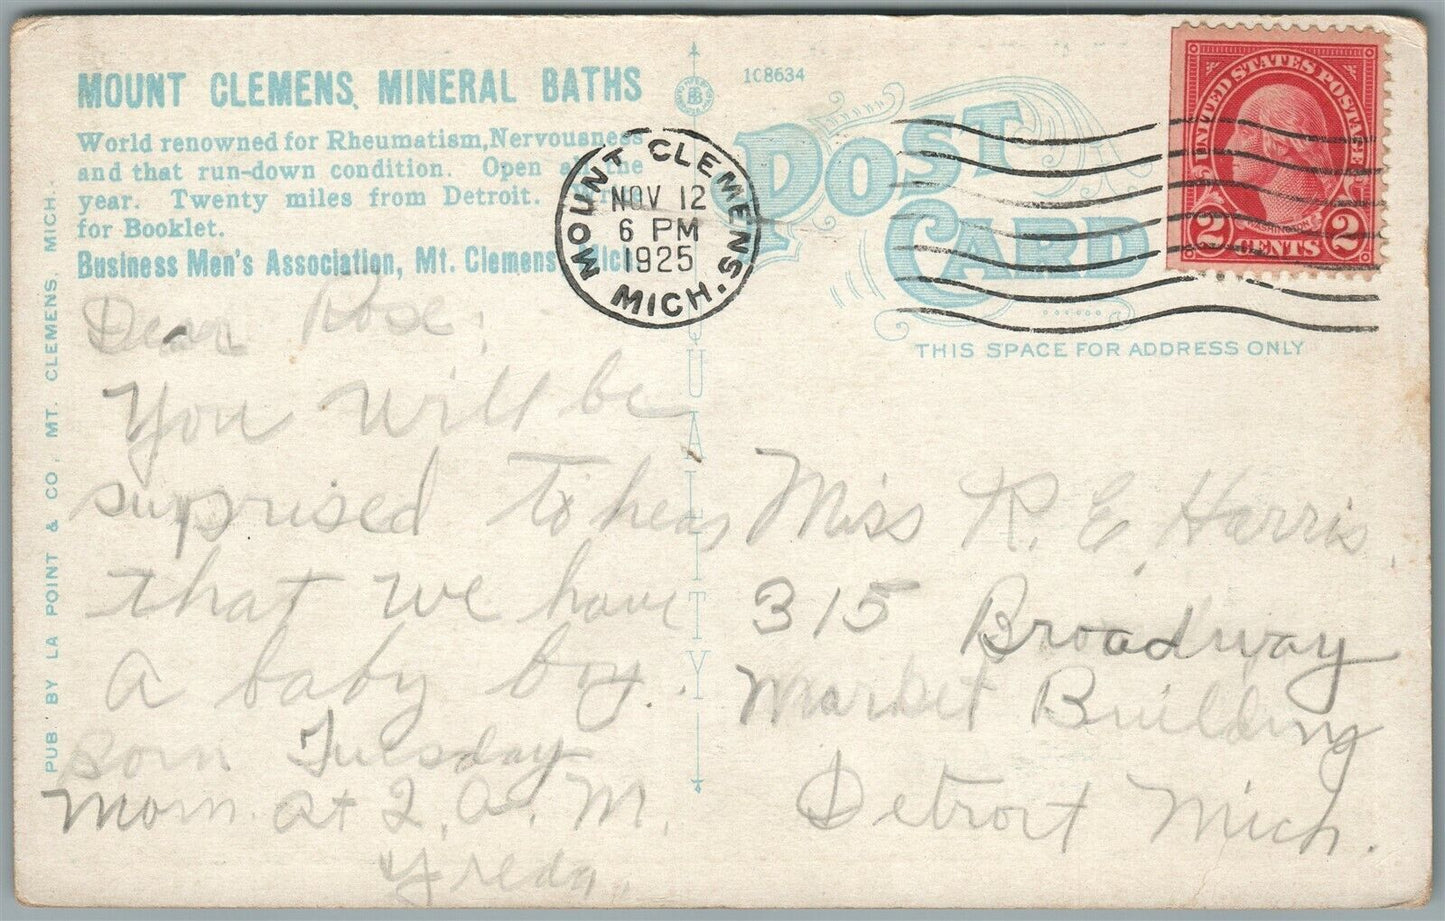 MOUNT CLEMENS, MINERAL BATHS
World renowned for Rheumatism, Nervousness
and that run-down condition. Open all the
year. Twenty miles from Detroit.
for Booklet.
Business Men's Association, Mt. Clemens, Mich
PUB BY LA POINT & CO., MT. CLEMENS, MICH.
1C8634
POST
CARD
THIS SPACE FOR ADDRESS ONLY
QUALITY
MOUNT CLEMENS, MICH.
NOV 12
6 PM
1925
UNITED STATES POSTAGE
WASHINGTON
2 CENTS 2
Dear Rose,
You will be
surprised to hear
that we have
a baby boy.
Born Tuesday
Morn. at 2, A. M.
Freda.
Miss R. E. Harris,
315 Broadway
Market Building
Detroit Mich.